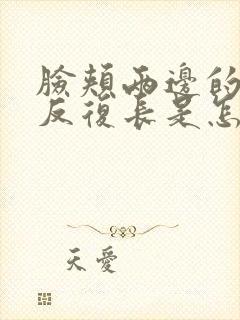 臉頰兩邊的
反復長是怎
天愛